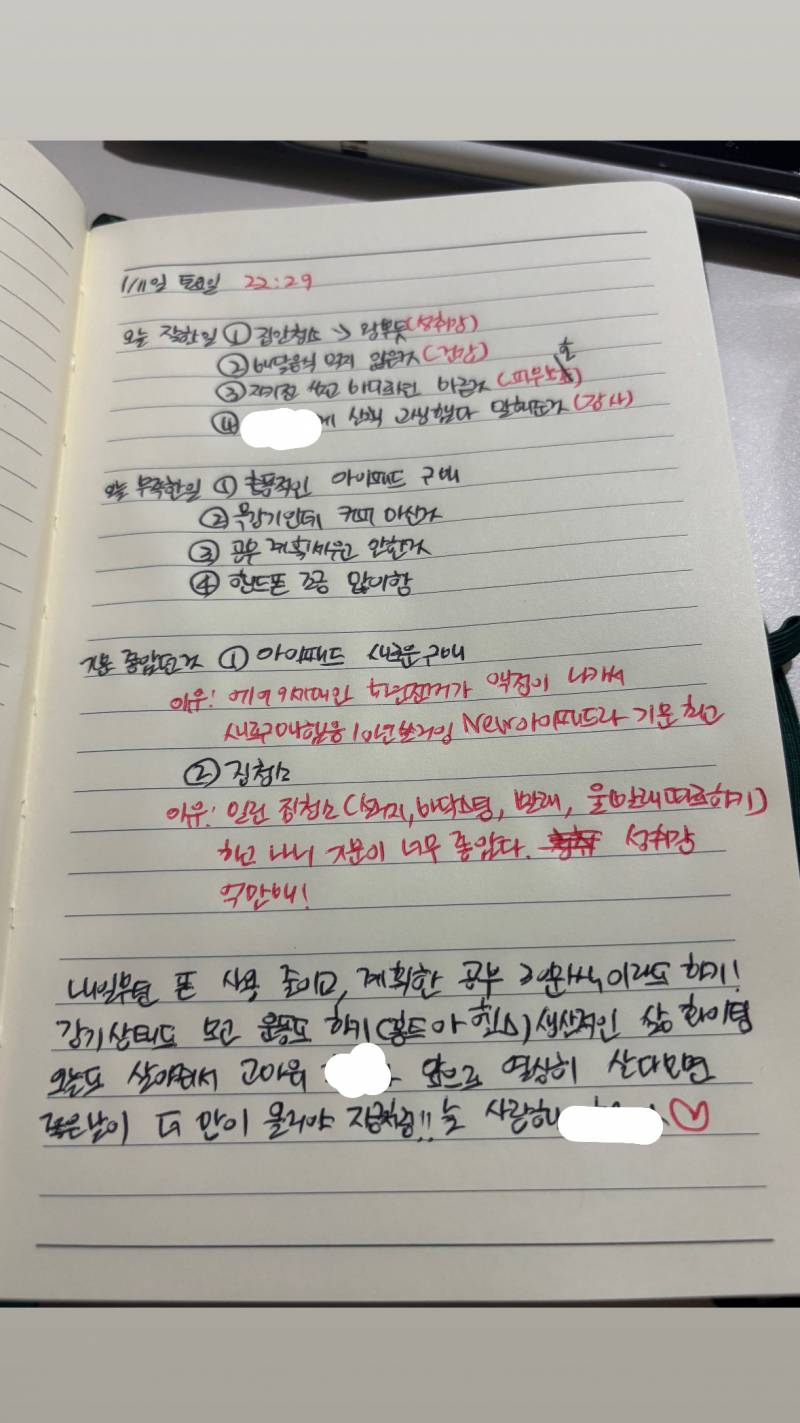 1/11일 토요일 22:29
오늘 잘한일 ① 집안청소 → 왕뿌듯(성취감)
② 배달음식 먹지 않은거(건강)
③ 자기전 씻고 바디로션 바른거(피부보호)
④ 에게 산책 고생했다 말해준거(감사)
오늘 부족한일 ① 충동적인 아이패드 구매
② 목감기인데 커피 마신거
③ 공부 계획세우고 안한거
④ 핸드폰 조금 많이함
기분 좋았던거 ① 아이패드 새로운구매
이유: 에어 세대인 액정이 나가서
새로구매했음 10년쓸거임 New아이패드라 기분 최고
② 집청소
이유: 밀린 집청소(설거지, 바닥스팀, 빨래, 울빨래따로하기)
하고 나니 기분이 너무 좋았다. 성취감
억만배!
내일부턴 폰 사용 줄이고, 계획한 공부 30분씩이라도 하기!
감기상태도 보고 운동도 하기(홈트 or 헬스) 생산적인 삶 화이팅
오늘도 살아줘서 고마워 앞으로 열심히 산다보면
좋은날이 더 많이 올거야 지금처럼!! 늘 사랑해